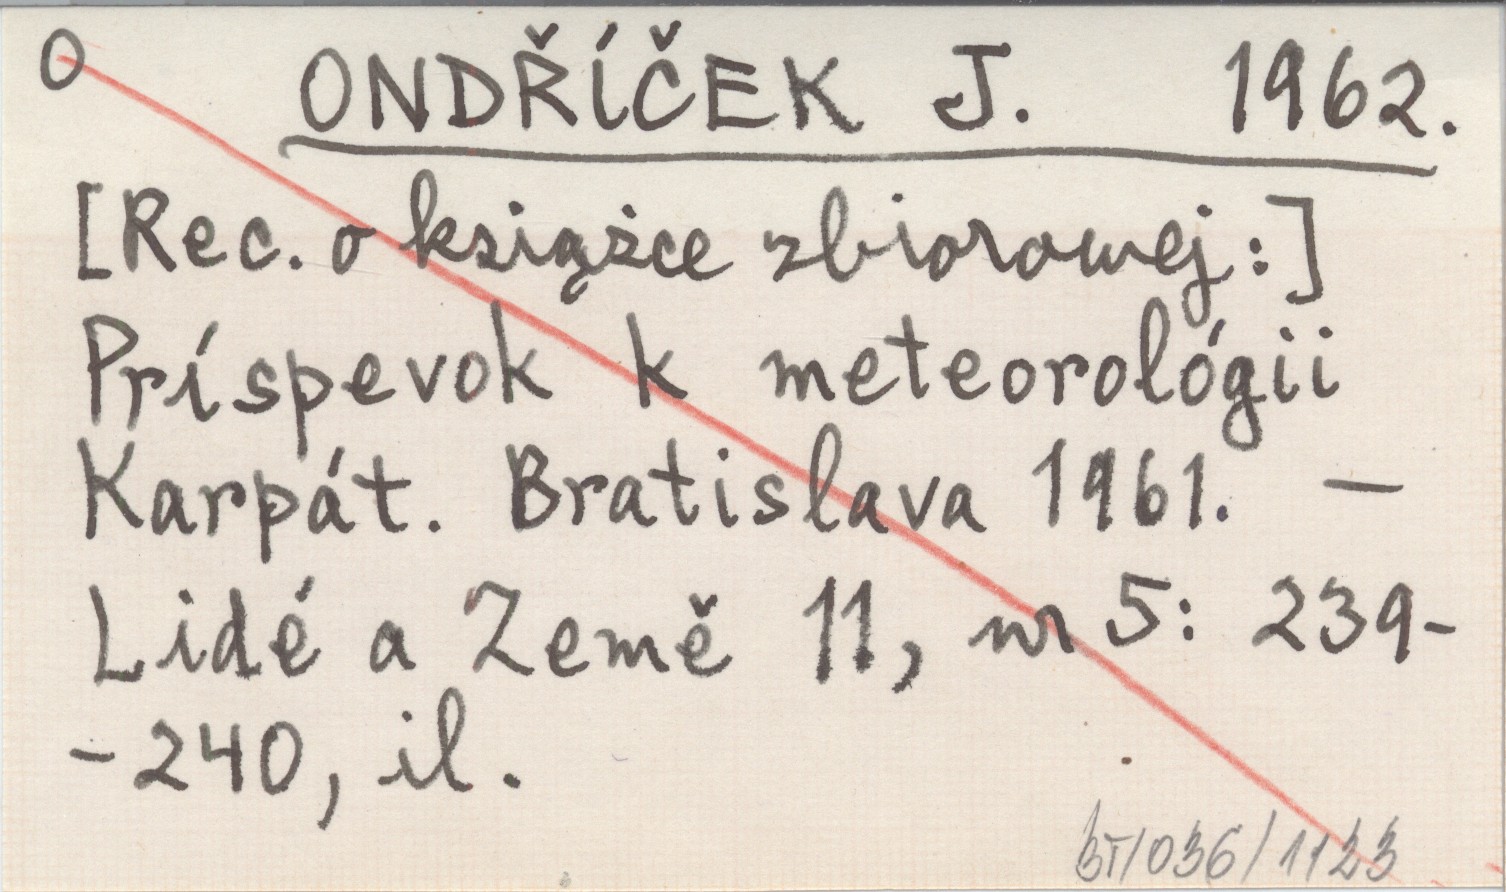 O ONDŘÍČEK J. 1962.
[Rec. o książce zbiorowej:]
Príspevok k meteorológii
Karpát. Bratislava 1961. —
Lidé a Země 11, nr 5: 239-
-240, il.
BT/036/1123